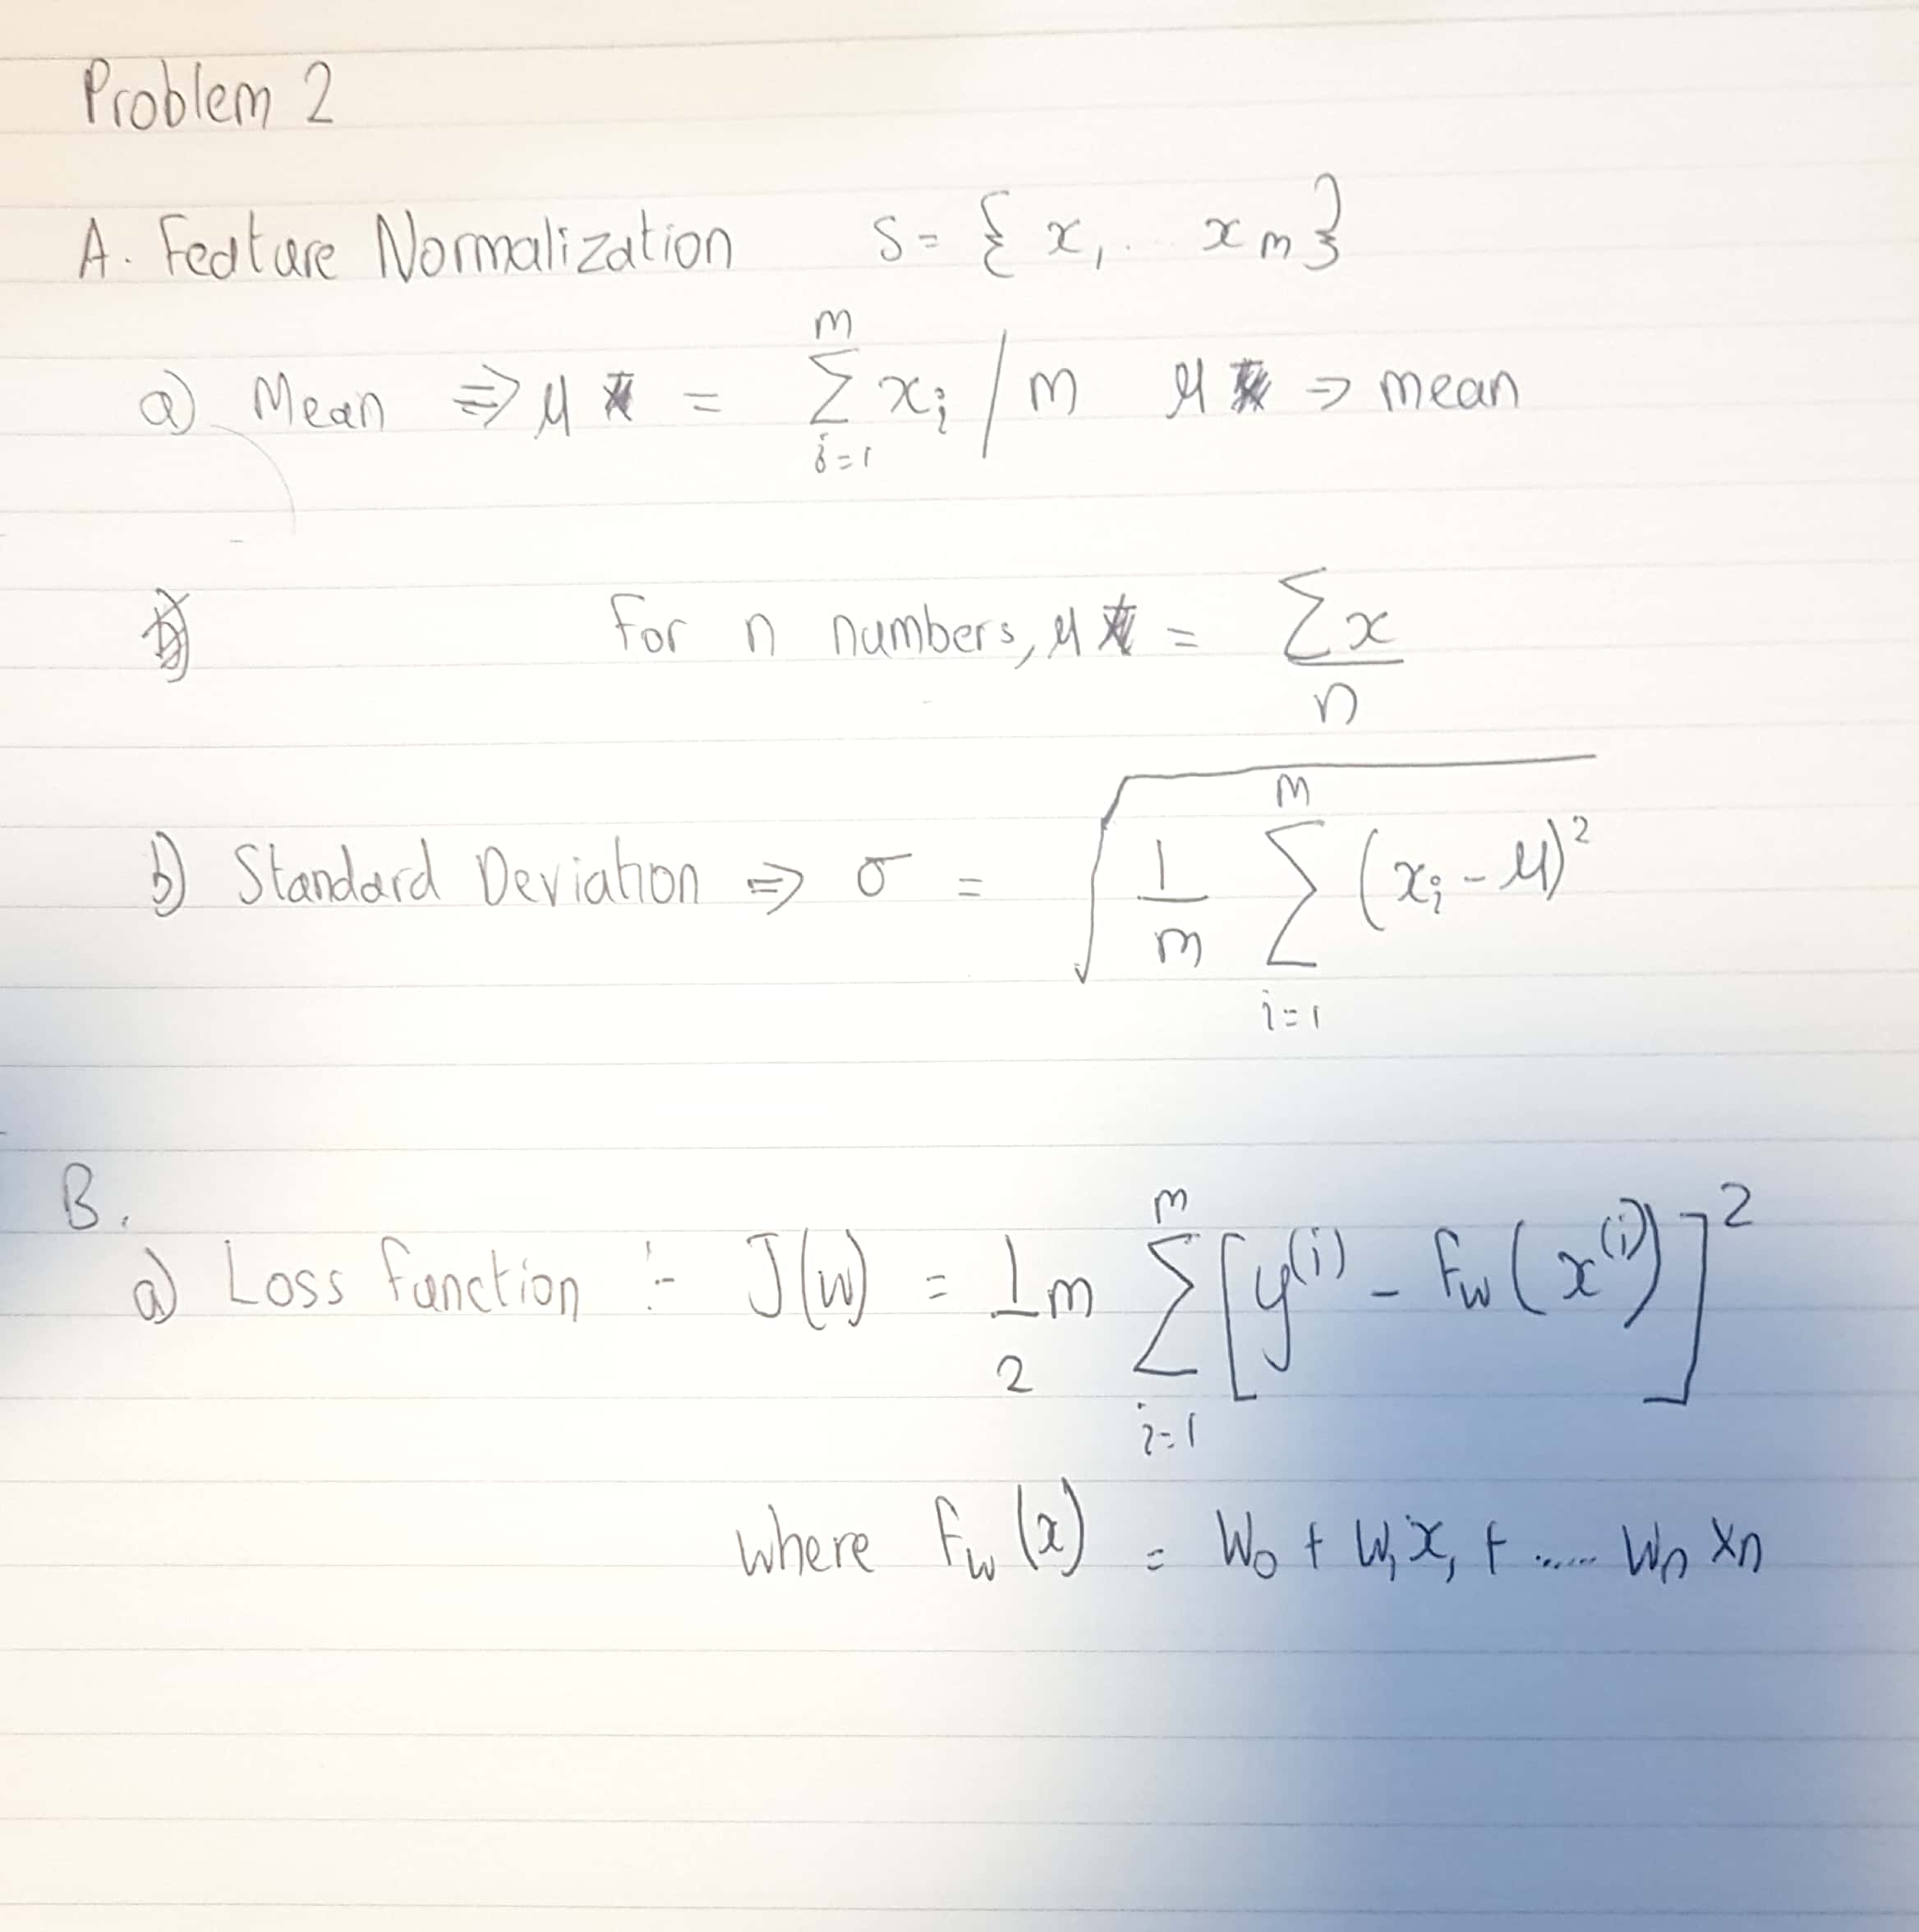 Problem 2
A. Feature Normalization S = { x₁ .... x m }
a) Mean => μ = ∑_{i=1}^{m} xᵢ / m μ => mean
For n numbers, μ = ∑x / n
b) Standard Deviation => σ = √( 1/m ∑_{i=1}^{m} (xᵢ - μ)² )
B.
a) Loss function :- J(w) = 1/2 m ∑_{i=1}^{m} [ y⁽ⁱ⁾ - Fw ( x⁽ⁱ⁾ ) ]²
where Fw (x) = W₀ + W₁x₁ + ...... Wn xn